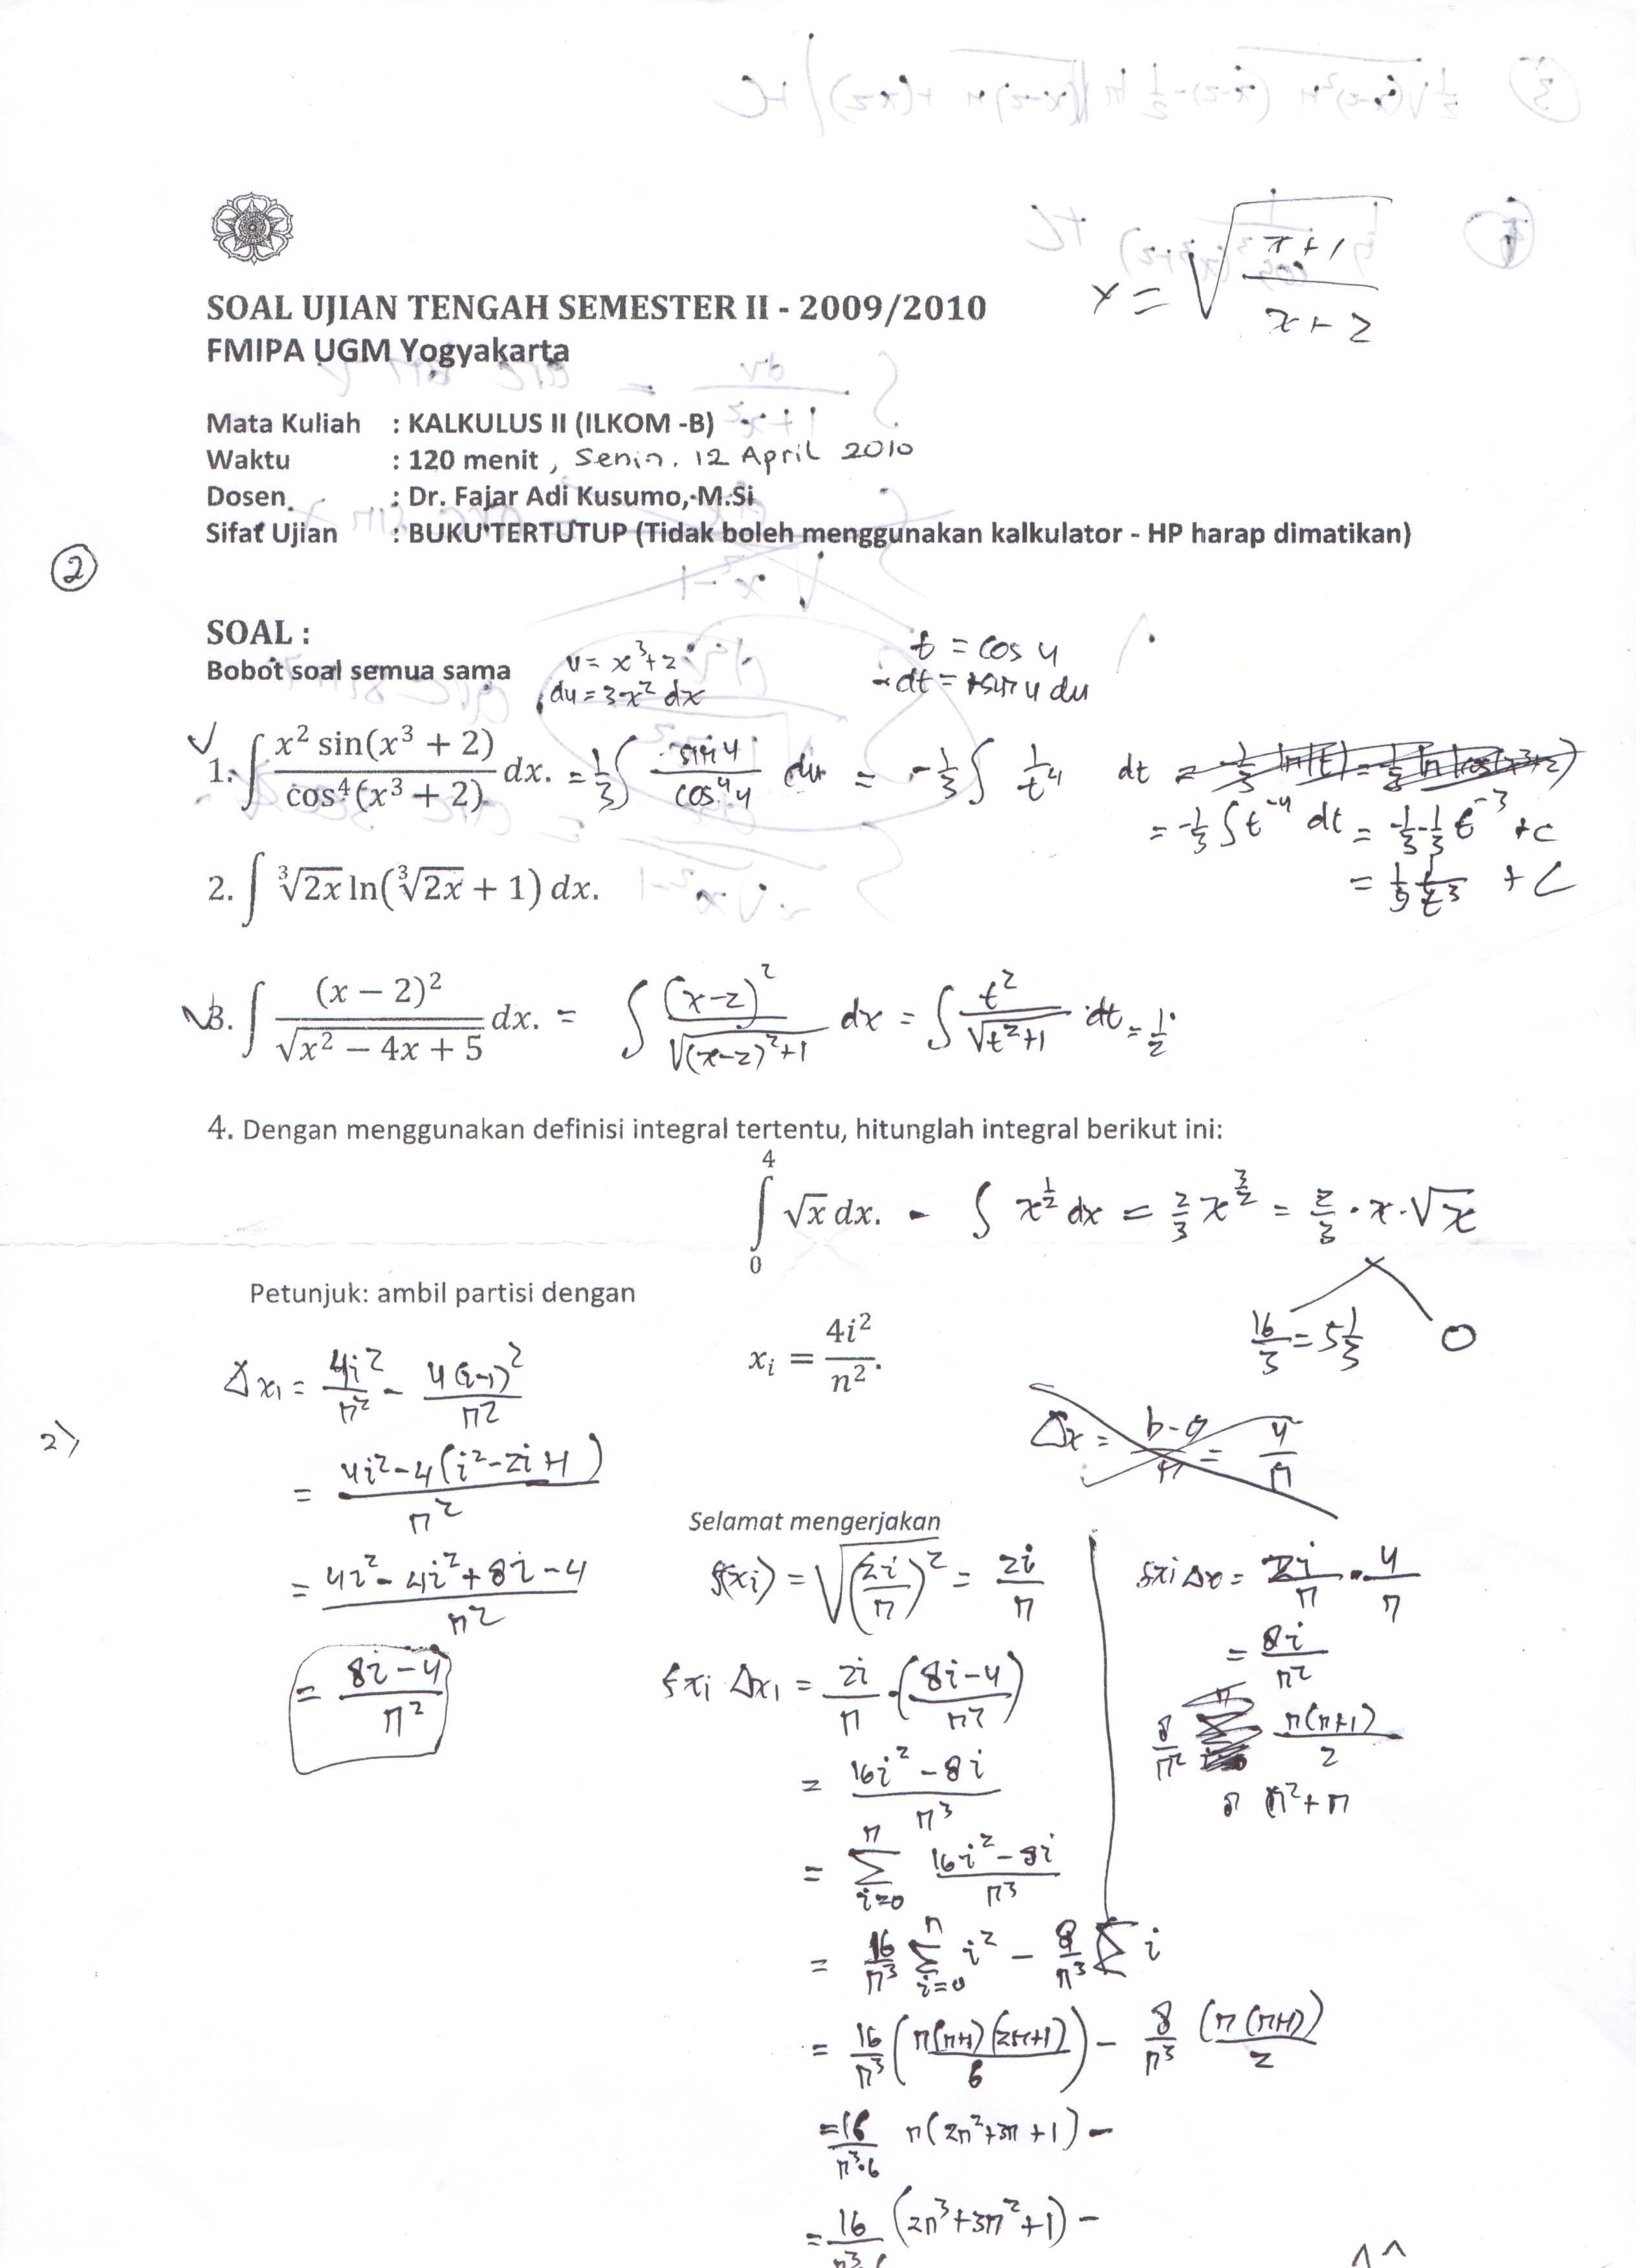 x = √((x+1)/(x+2))
SOAL UJIAN TENGAH SEMESTER II - 2009/2010
FMIPA UGM Yogyakarta
Mata Kuliah : KALKULUS II (ILKOM -B)
Waktu : 120 menit , Senin. 12 April 2010
Dosen : Dr. Fajar Adi Kusumo, M.Si
Sifat Ujian : BUKU TERTUTUP (Tidak boleh menggunakan kalkulator - HP harap dimatikan)
2
SOAL :
Bobot soal semua sama
u = x³+2
du = 3x² dx
t = cos u
-dt = +sin u du
1. ∫ (x² sin(x³ + 2))/(cos⁴(x³ + 2)) dx. = 1/3 ∫ (sin u)/(cos⁴ u) du = -1/3 ∫ 1/t⁴ dt
= -1/3 ∫ t⁻⁴ dt = -1/3 · -1/3 t⁻³ + C
= 1/9 1/t³ + C
2. ∫ ∛(2x) ln(∛(2x) + 1) dx.
3. ∫ (x − 2)²/√(x² − 4x + 5) dx. = ∫ (x-2)²/√((x-2)²+1) dx = ∫ t²/√(t²+1) dt = 1/2
4. Dengan menggunakan definisi integral tertentu, hitunglah integral berikut ini:
∫₀⁴ √x dx. - ∫ x^(1/2) dx = 2/3 x^(3/2) = 2/3 · x · √x
16/3 = 5 1/3
0
Petunjuk: ambil partisi dengan
xᵢ = 4i²/n².
Δx = (b-a)/n = 4/n
Δx₁ = 4i²/n² - 4(i-1)²/n²
2)
= (4i²-4(i²-2i+1))/n²
= (4i²-4i²+8i-4)/n²
= (8i-4)/n²
Selamat mengerjakan
f(xᵢ) = √((2i/n)²) = 2i/n
fxᵢ Δx₁ = 2i/n · ((8i-4)/n²)
= (16i²-8i)/n³
= Σ_{i=0}^{n} (16i²-8i)/n³
= 16/n³ Σ_{i=0}^{n} i² - 8/n³ Σ i
= 16/n³ (n(n+1)(2n+1)/6) - 8/n³ (n(n+1))/2
= 16/(n³·6) n(2n²+3n+1) -
= 16/(n³·6) (2n³+3n²+1) -
fxᵢ Δx = 2i/n · 4/n
= 8i/n²
8/n² n(n+1)/2
n²+n